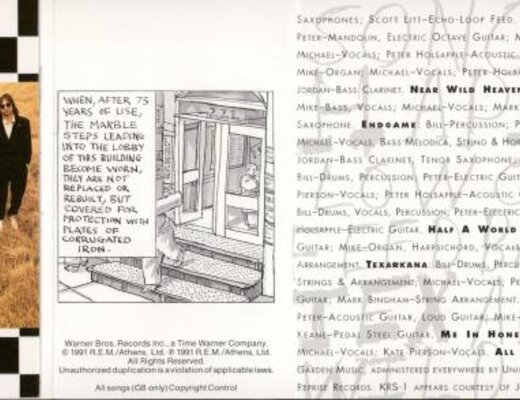 WHEN, AFTER 75
YEARS OF USE,
THE MARBLE
STEPS LEADING
INTO THE LOBBY
OF THIS BUILDING
BECOME WORN,
THEY ARE NOT
REPLACED OR
REBUILT, BUT
COVERED FOR
PROTECTION WITH
PLATES OF
CORRUGATED
IRON.
Warner Bros. Records Inc., a Time Warner Company.
© 1991 R.E.M./Athens, Ltd. ℗ 1991 R.E.M./Athens, Ltd.
All Rights Reserved.
Unauthorized duplication is a violation of applicable laws.
All songs (GB only) Copyright Control
Saxophones; Scott Litt–Echo-Loop Feed.
Peter–Mandolin, Electric Octave Guitar; M
Michael–Vocals; Peter Holsapple–Acoustic
Mike–Organ; Michael–Vocals; Peter Hols
Jordan–Bass Clarinet. Near Wild Heaven
Mike–Bass, Vocals; Michael–Vocals; Mark
Saxophone. Endgame: Bill–Percussion; P
Michael–Vocals, Bass Melodica, String & Hor
Jordan–Bass Clarinet, Tenor Saxophone,
Bill–Drums, Percussion Peter–Electric Gui
Pierson–Vocals; Peter Holsapple–Acoustic
Bill–Drums, Vocals, Percussion; Peter–Electric
Holsapple–Electric Guitar. Half A World
Guitar; Mike–Organ, Harpsichord, Vocals
Arrangement. Texarkana: Bill–Drums, Percu
Strings & Arrangement; Michael–Vocals; Pe
Guitar; Mark Bingham–String Arrangement.
Peter–Acoustic Guitar, Loud Guitar; Mike–
Keane–Pedal Steel Guitar. Me In Hone
Michael–Vocals; Kate Pierson–Vocals. All
Garden Music, administered everywhere by Uni
Reprise Records. KRS-1 appears courtesy of J